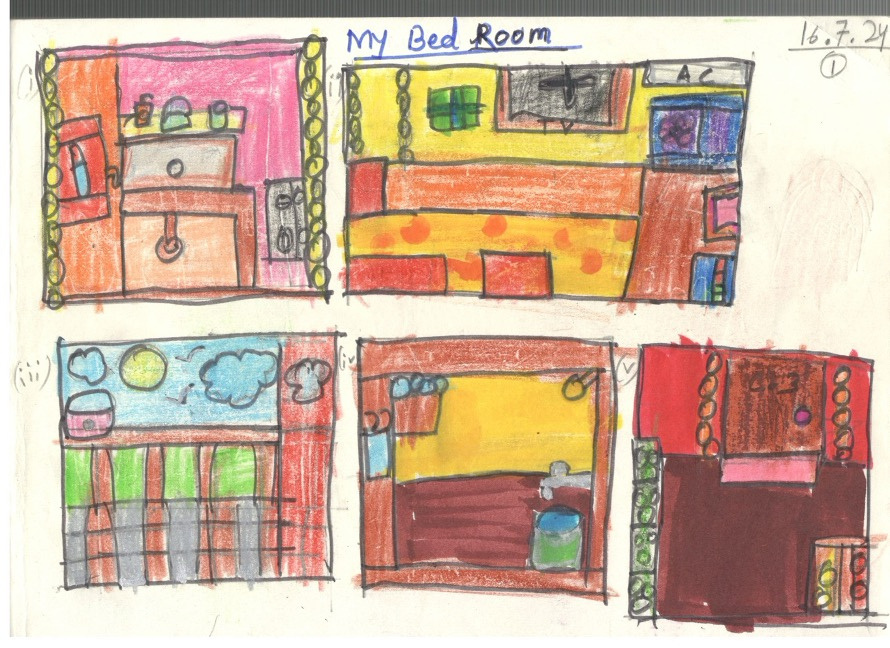 My Bed Room
16.7.24
1
(i)
(ii)
AC
TV
(iii)
(iv)
(v)